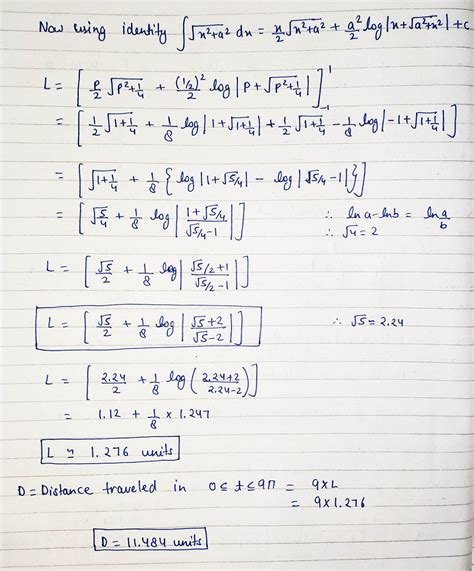 Now using identity ∫√(x²+a²) dx = x/2 √(x²+a²) + a²/2 log|x+√(a²+x²)| + c
L = [ P/2 √(P²+1/4) + (1/2)²/2 log|P+√(P²+1/4)| ]₋₁¹
= [ 1/2 √(1+1/4) + 1/8 log|1+√(1+1/4)| + 1/2 √(1+1/4) - 1/8 log|-1+√(1+1/4)| ]
= [ √(1+1/4) + 1/8 { log|1+√5/4| - log|√5/4 -1| } ]
= [ √(5/4) + 1/8 log| (1+√5/4)/(√5/4 -1) | ] ∴ ln a - ln b = ln a/b
∴ √4 = 2
L = [ √5/2 + 1/8 log| (√5/2 +1)/(√5/2 -1) | ]
L = [ √5/2 + 1/8 log| (√5+2)/(√5-2) | ] ∴ √5 = 2.24
L = [ 2.24/2 + 1/8 log( (2.24+2)/(2.24-2) ) ]
= 1.12 + 1/8 × 1.247
L ≃ 1.276 units
D = Distance traveled in 0 ≤ t ≤ 9π = 9×L
= 9×1.276
D = 11.484 units